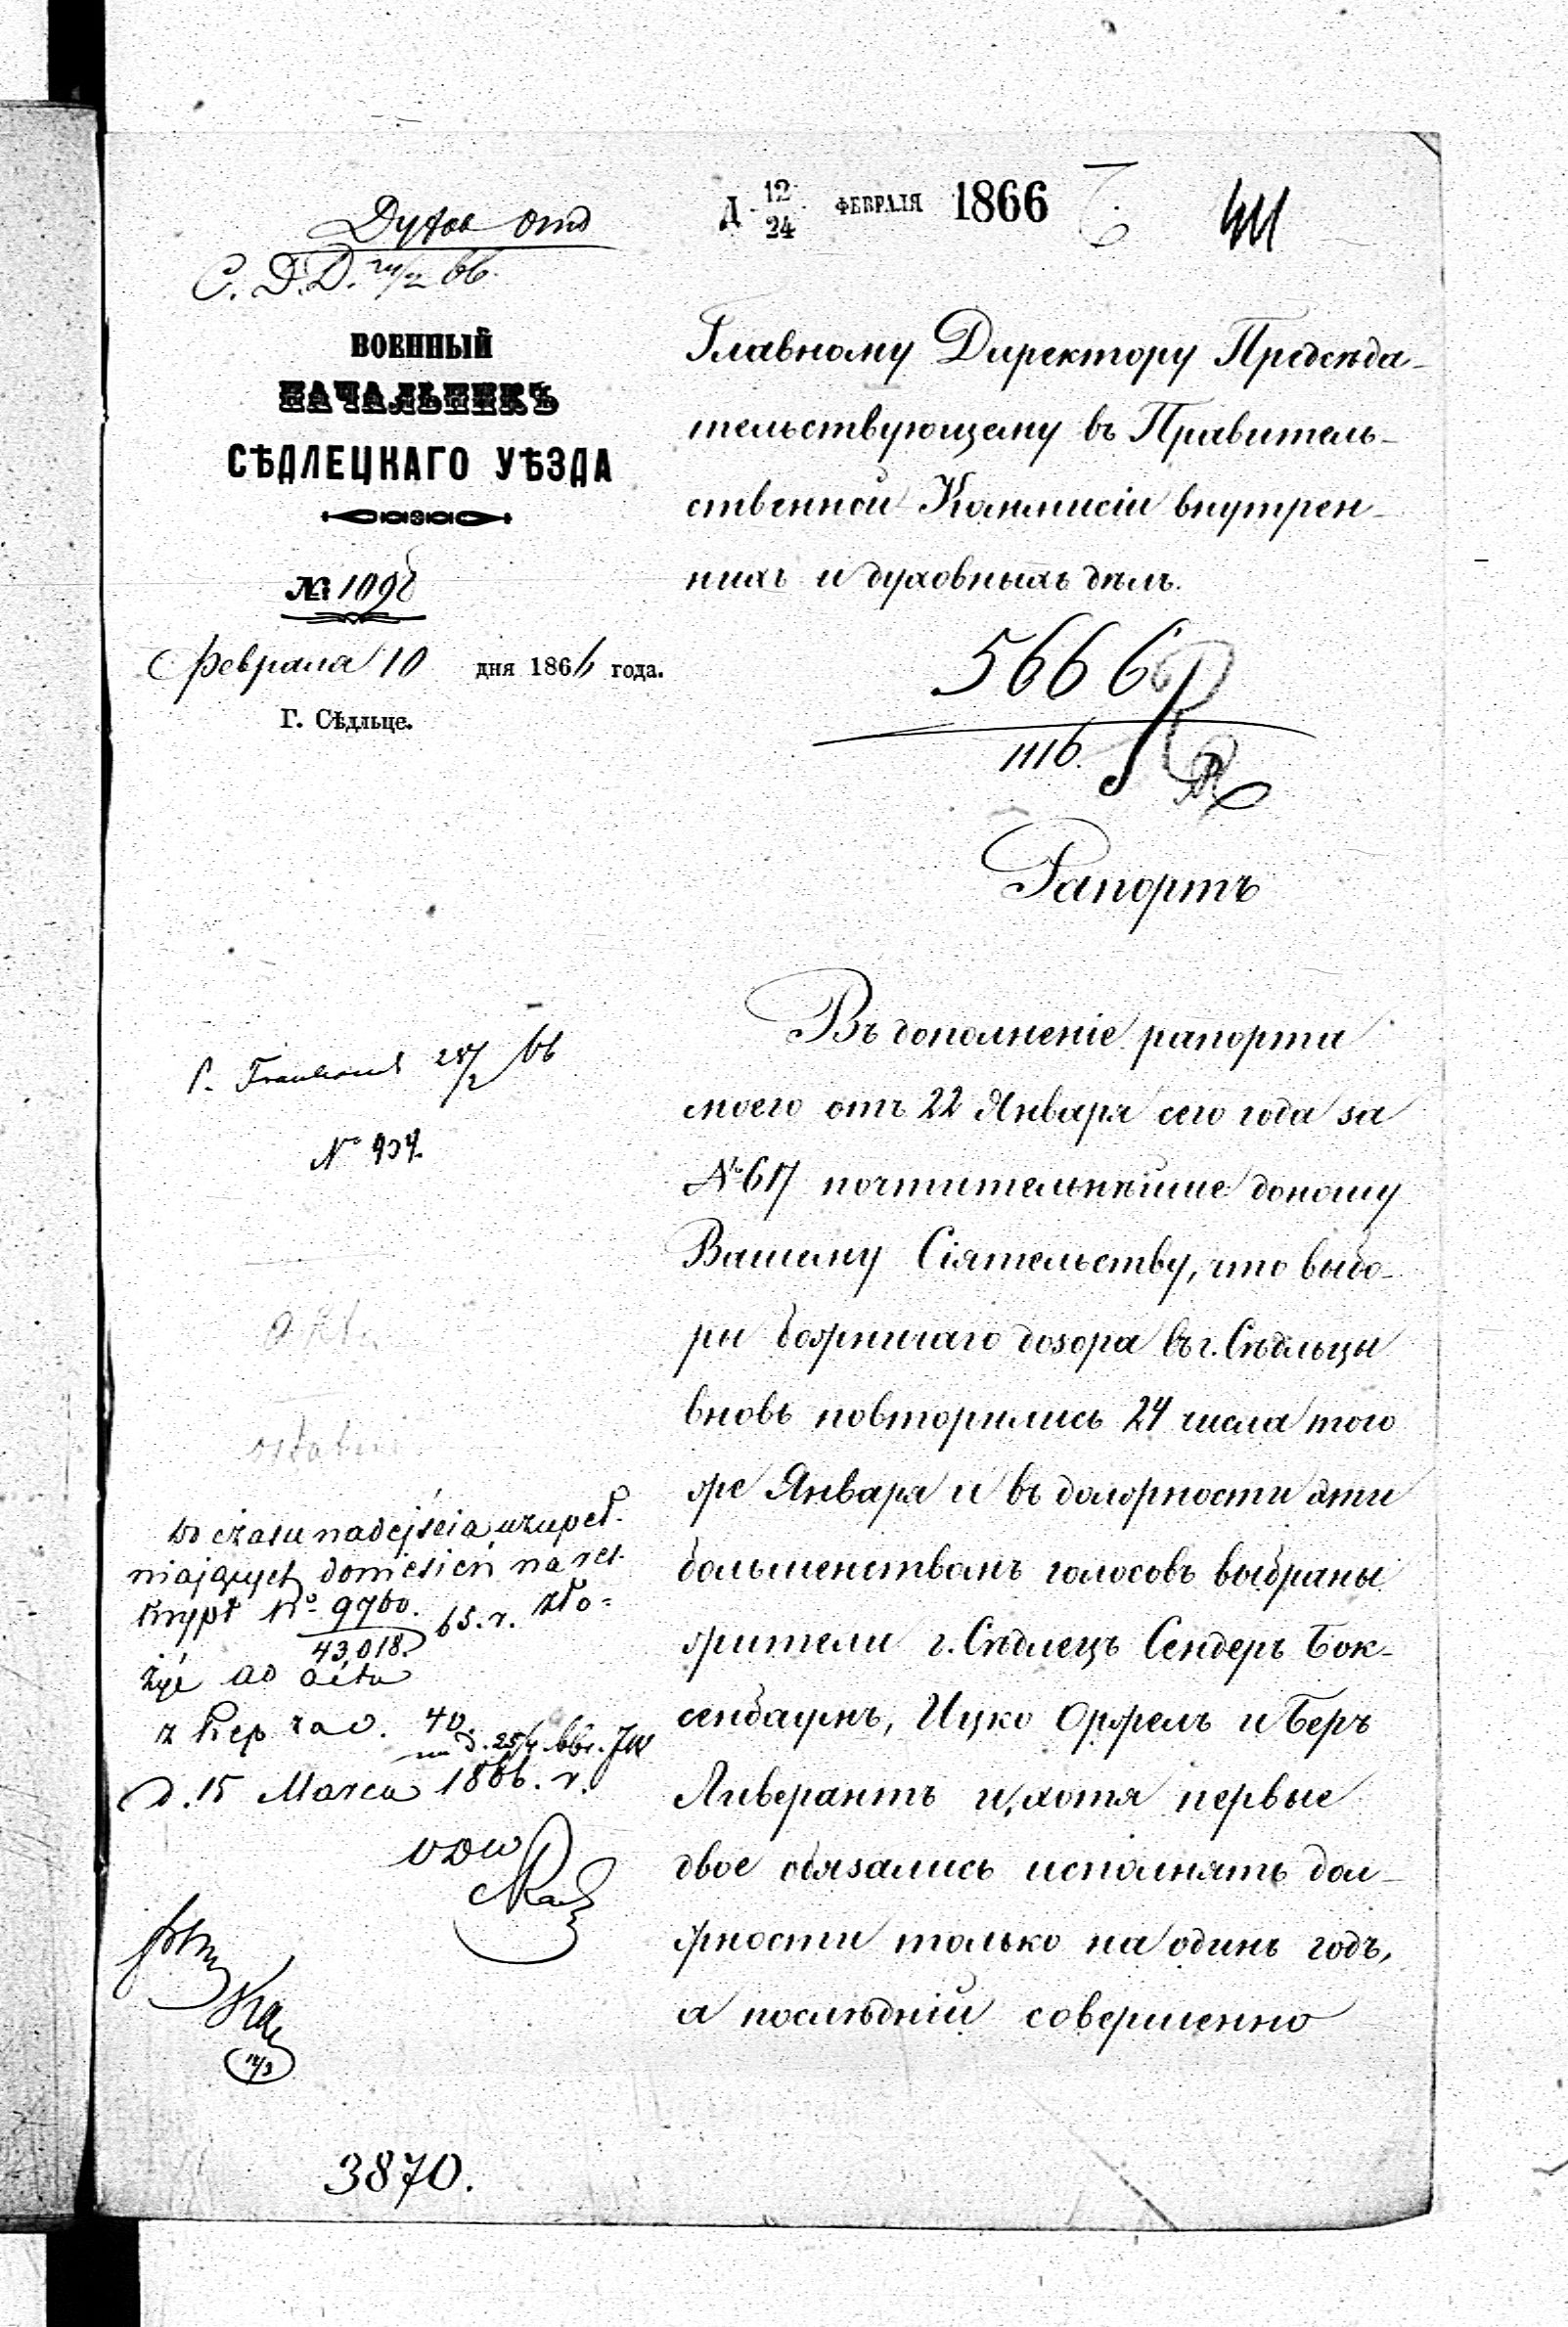 Духов отд
С. D.D. 24/2 66.
Д. 12/24 ФЕВРАЛЯ 1866
ВОЕННЫЙ
НАЧАЛЬНИКЪ
СѢДЛЕЦКАГО УѢЗДА
№ 1098
Февраля 10 дня 1866 года.
Г. Сѣдльце.
Главному Директору Предсѣда-
тельствующему въ Правитель-
ственной Коммисіи внутрен-
нихъ и духовныхъ дѣлъ.
5666
1116.
Рапортъ
Въ дополненіе рапорта
моего отъ 22 Января сего года за
№ 617 почтительнѣйше доношу
Вашему Сіятельству, что выбо-
ры божничаго дозора въ г. Сѣдльцы
вновь повторились 24 числа того
же Января и въ должности эти
большенствомъ голосовъ выбраны
жители г. Сѣдлецъ Сендеръ Бок-
сенбаумъ, Ицко Оржелъ и Беръ
Ливерантъ и, хотя первые
двое обязались исполнять дол-
жности только на одинъ годъ,
а послѣдній совершенно
28/2 66
N° 934.
Do czasu nadejścia uzupeł-
niających doniesień na res-
krypt N° 9760./43,018. 65. r. zło-
żyć ad acta
z Rep rad. 40.
d. 15 Marca 1866. r.
3870.